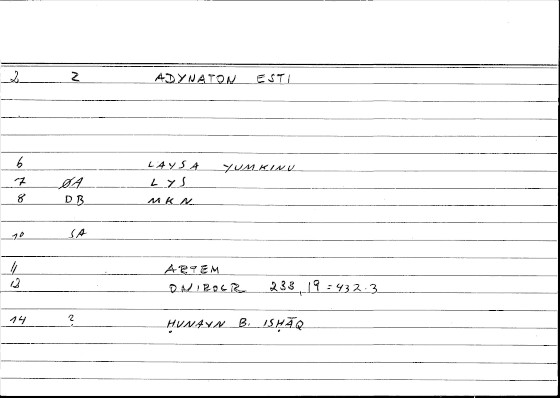 2 2 ADYNATON ESTI
6 LAYSA YUMKINU
7 ØA LYS
8 DB MKN
10 SA
11 ARTEM
12 ONIROCR 233,19=432.3
14 ? ḤUNAYN B. ISḤĀQ